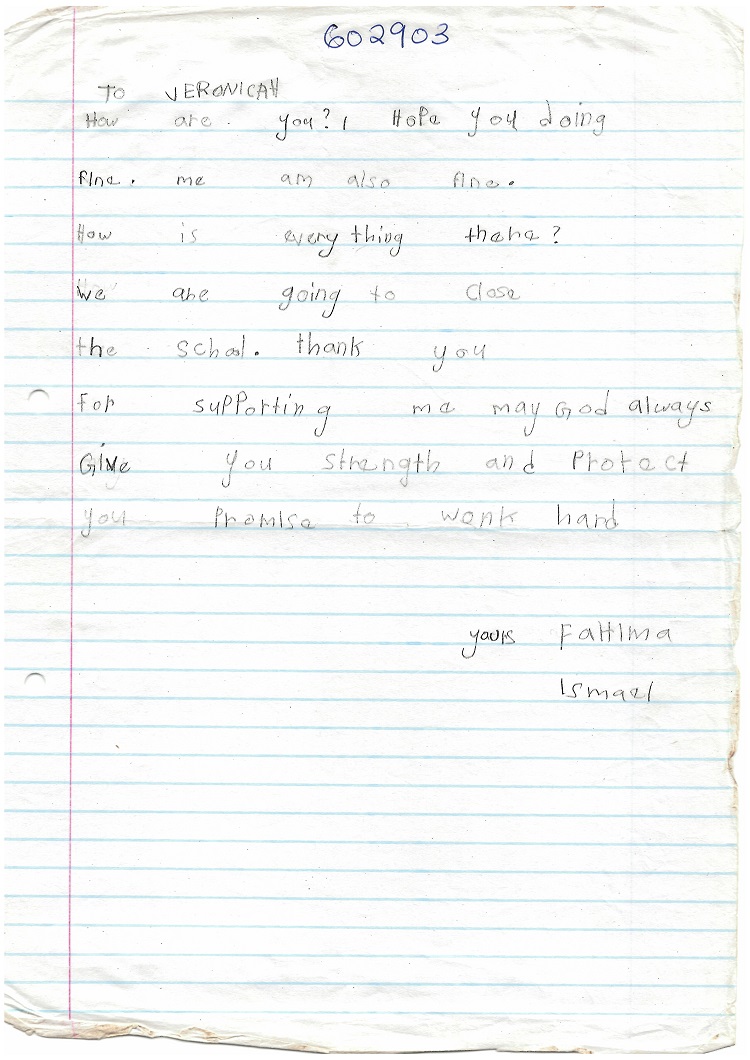 602903
TO VERONICAH
How are you? I Hope you doing
fine. me am also fine.
How is everything there?
We are going to close
the school. thank you
for supporting me may God always
Give you strength and Protect
you Promise to work hard
yours Fatima
Ismael